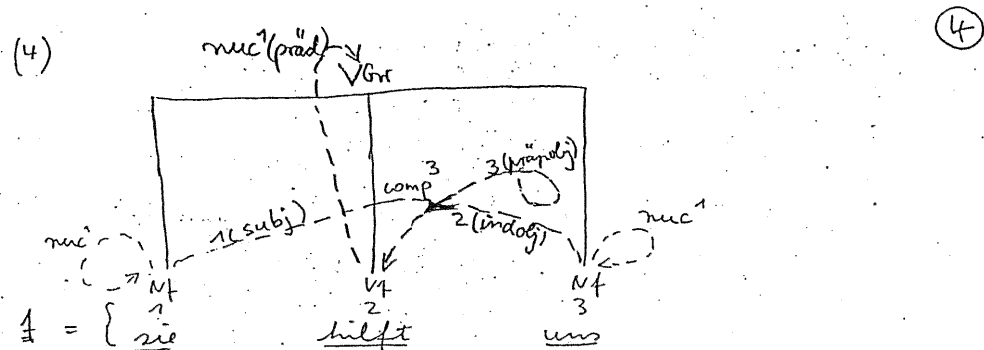 (4) 4
nuc¹(präd)
VGr
comp³ 3(präpobj)
1(subj) 2(indobj)
nuc¹ nuc¹
Nf Vf Nf
1 2 3
f = { sie hilft uns